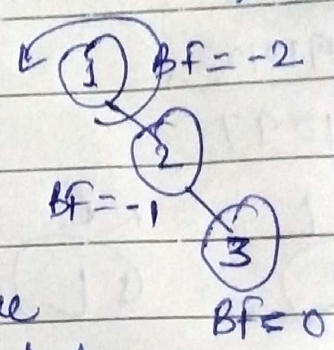 1 BF = -2
2
BF = -1
3
BF = 0